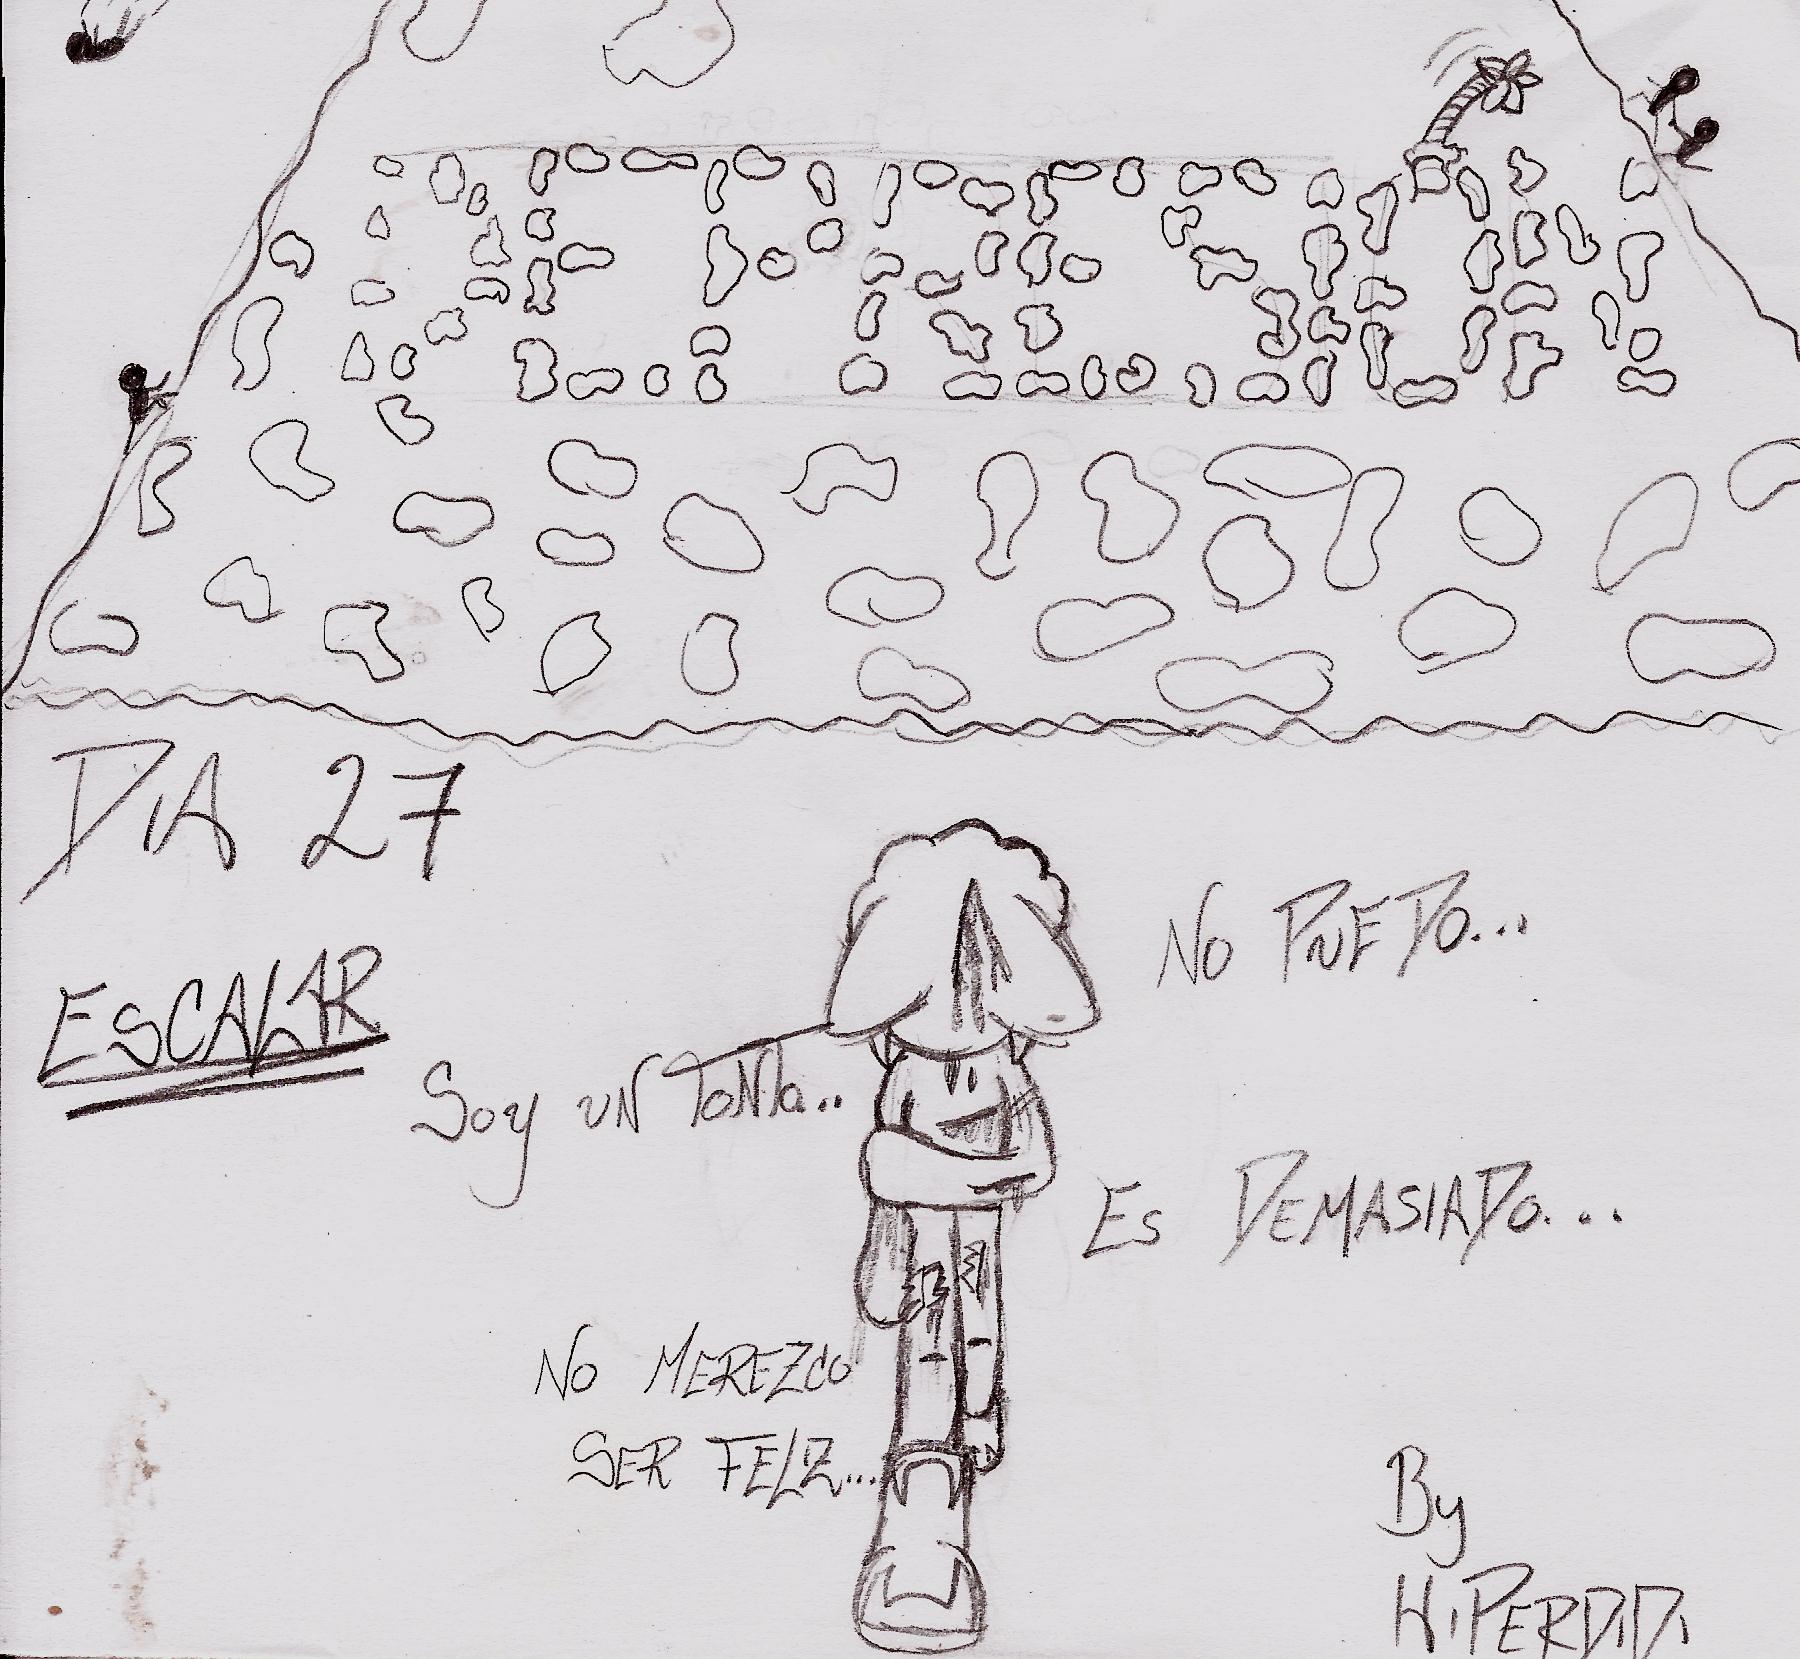 DEPRESIÓN
DiA 27
ESCALAR
No PUEDO...
Soy UN ToNTo..
Es DEMASIADO...
No MEREZCO
SER FELIZ...
By
HiPERDiDi